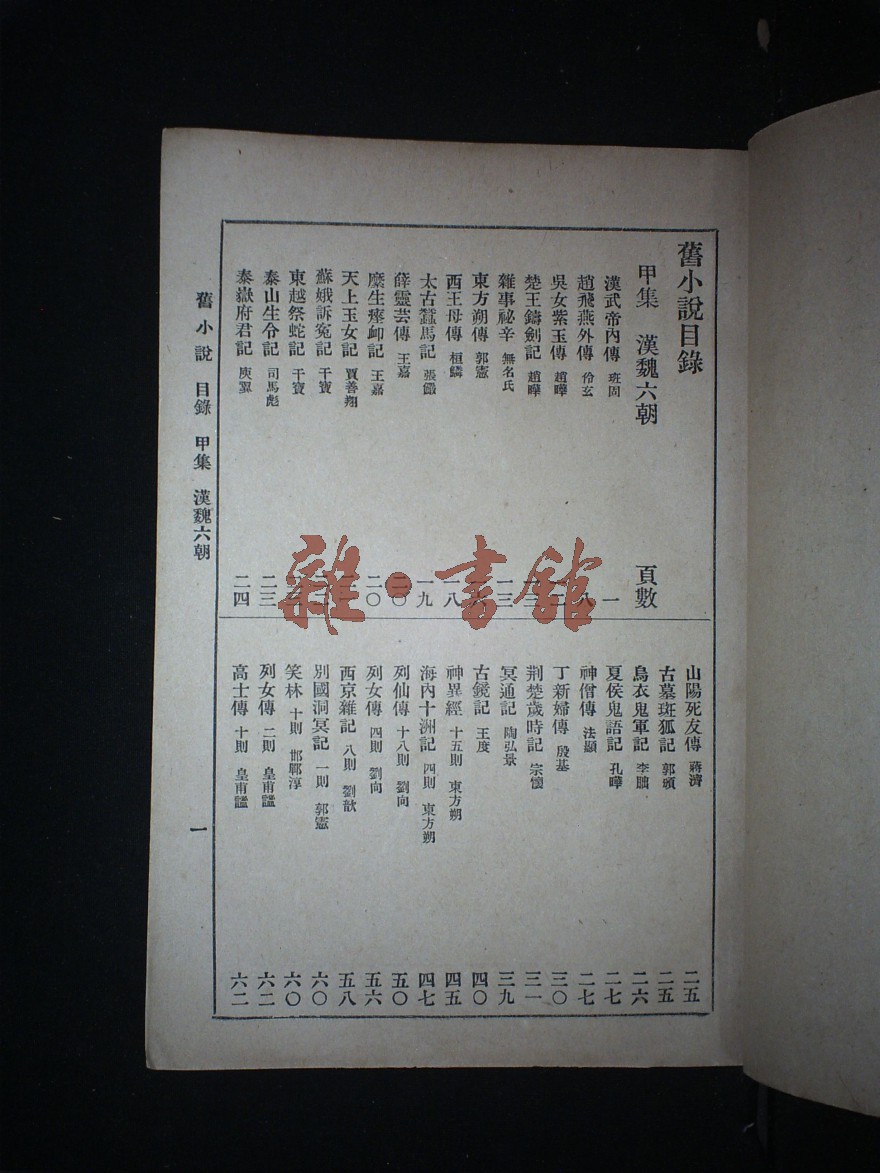 舊小說目錄
甲集 漢魏六朝 頁數
漢武帝內傳 班固 一
趙飛燕外傳 伶玄 八
吳女紫玉傳 趙曄
楚王鑄劍記 趙曄
雜事祕辛 無名氏 一三
東方朔傳 郭憲
西王母傳 桓驎 一八
太古蠶馬記 張儼 一九
薛靈芸傳 王嘉 二〇
糜生瘞卹記 王嘉 二〇
天上玉女記 賈善翔
蘇娥訴冤記 干寶
東越祭蛇記 干寶
泰山生令記 司馬彪 二三
泰嶽府君記 庾翼 二四
山陽死友傳 蔣濟 二五
古墓斑狐記 郭頒 二五
烏衣鬼軍記 李朏 二六
夏侯鬼語記 孔曄 二七
神僧傳 法顯 二七
丁新婦傳 殷基 三〇
荆楚歲時記 宗懍 三一
冥通記 陶弘景 三九
古鏡記 王度 四〇
神異經 十五則 東方朔 四五
海內十洲記 四則 東方朔 四七
列仙傳 十八則 劉向 五〇
列女傳 四則 劉向 五六
西京雜記 八則 劉歆 五八
別國洞冥記 一則 郭憲 六〇
笑林 十則 邯鄲淳 六〇
列女傳 二則 皇甫謐 六二
高士傳 十則 皇甫謐 六二
舊小說 目錄 甲集 漢魏六朝 一
雜·書館